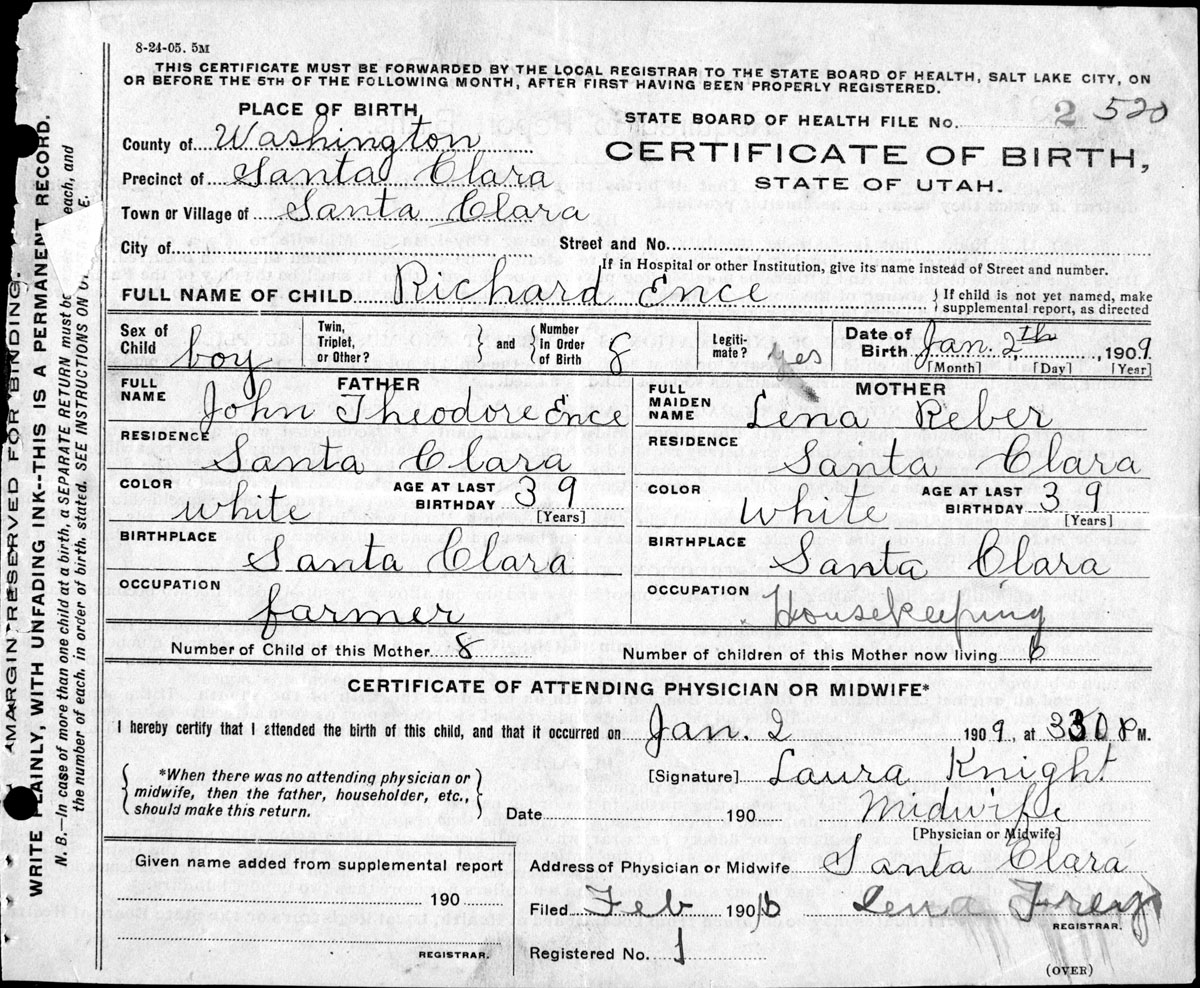 8-24-05. 5M
THIS CERTIFICATE MUST BE FORWARDED BY THE LOCAL REGISTRAR TO THE STATE BOARD OF HEALTH, SALT LAKE CITY, ON
OR BEFORE THE 5TH OF THE FOLLOWING MONTH, AFTER FIRST HAVING BEEN PROPERLY REGISTERED.
PLACE OF BIRTH
STATE BOARD OF HEALTH FILE No. 2 520
County of Washington
CERTIFICATE OF BIRTH,
STATE OF UTAH.
Precinct of Santa Clara
Town or Village of Santa Clara
City of Street and No.
If in Hospital or other Institution, give its name instead of Street and number.
FULL NAME OF CHILD Richard Ence
If child is not yet named, make
supplemental report, as directed
Sex of Child boy
Twin, Triplet, or Other?
and
Number in Order of Birth 8
Legitimate? yes
Date of Birth Jan. 2th, 1909
[Month] [Day] [Year]
FATHER
FULL NAME John Theodore Ence
RESIDENCE Santa Clara
COLOR white
AGE AT LAST BIRTHDAY 39
[Years]
BIRTHPLACE Santa Clara
OCCUPATION farmer
MOTHER
FULL MAIDEN NAME Lena Reber
RESIDENCE Santa Clara
COLOR White
AGE AT LAST BIRTHDAY 39
[Years]
BIRTHPLACE Santa Clara
OCCUPATION Housekeeping
Number of Child of this Mother 8
Number of children of this Mother now living 6
CERTIFICATE OF ATTENDING PHYSICIAN OR MIDWIFE*
I hereby certify that I attended the birth of this child, and that it occurred on Jan. 2 1909, at 330 P M.
*When there was no attending physician or
midwife, then the father, householder, etc.,
should make this return.
[Signature] Laura Knight
Date 190 Midwife
[Physician or Midwife]
Given name added from supplemental report
190
REGISTRAR.
Address of Physician or Midwife Santa Clara
Filed Feb 190 Lena Frey
REGISTRAR.
Registered No. 1
(OVER)
MARGIN RESERVED FOR BINDING.
WRITE PLAINLY, WITH UNFADING INK--THIS IS A PERMANENT RECORD.
N. B.—In case of more than one child at a birth, a SEPARATE RETURN must be each, and
the number of each, in order of birth, stated. SEE INSTRUCTIONS ON